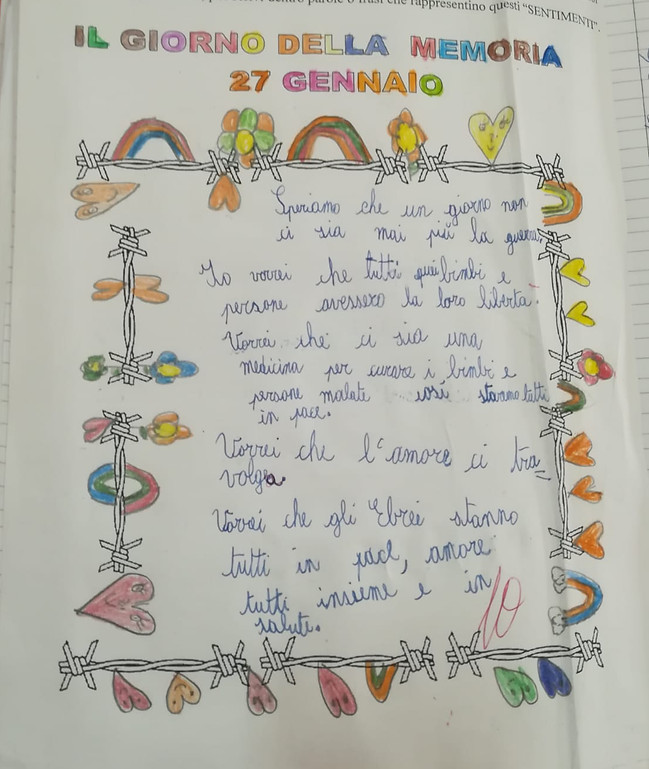 dentro parole o frasi che rappresentino questi "SENTIMENTI".
IL GIORNO DELLA MEMORIA
27 GENNAIO
Speriamo che un giorno non
ci sia mai più la guerra.
Io vorrei che tutti quei bimbi e
persone avessero la loro libertà.
Vorrei che ci sia una
medicina per curare i bimbi e
persone malate così stavano tutti
in pace.
Vorrei che l'amore ci tra_
volga.
Vorrei che gli Ebrei stanno
tutti in pace, amore
tutti insieme e in
salute.
10